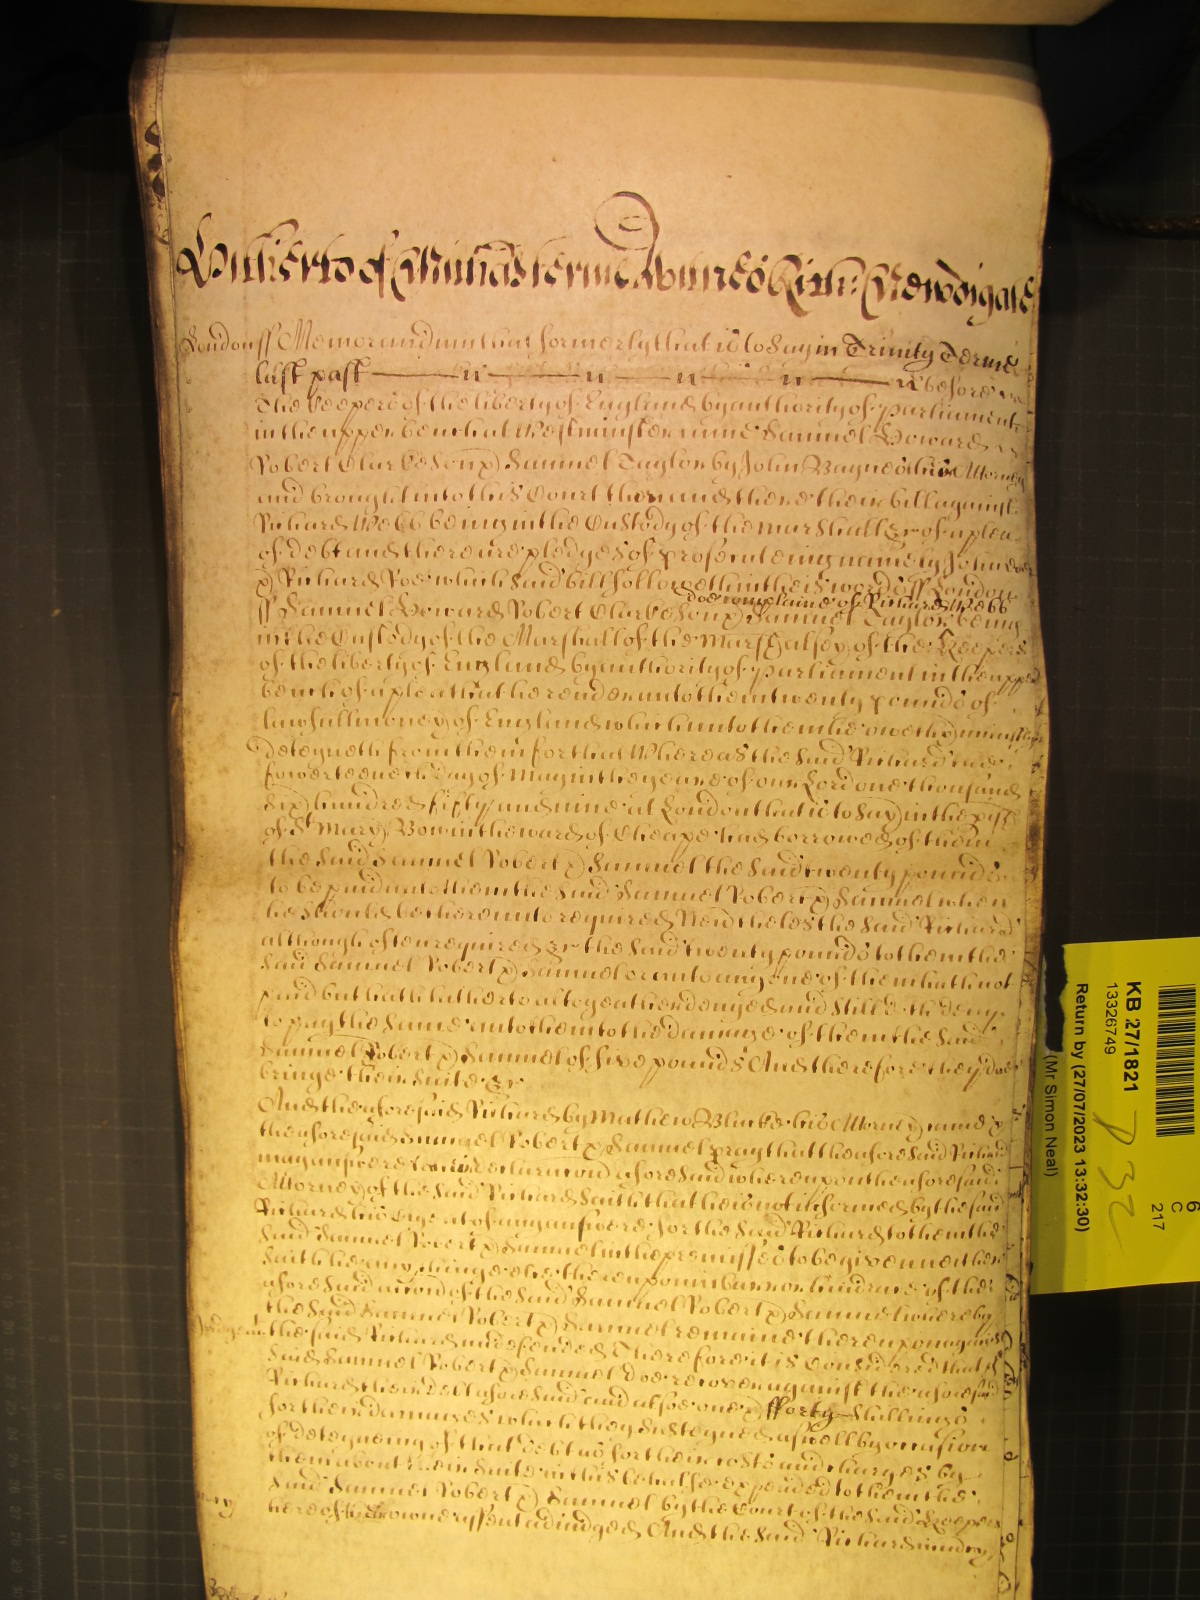 Hitherto of Michās terme Wittnes Rich: Newdigate
London ss Memorandum that formerly that is to Say in Trinity Terme
last past before
The keepers of the liberty of England by authority of parliament
in the upper bench at Westminster came Samuel Howard
Robert Clarkeson & Samuel Taylor by John Baynes their Attorney
and brought into this Court then and there their bill against
Richard Webb being in the Custody of the marshall &c of a plea
of debt and there are pledges of prosecuteing namely John Doe
& Richard Roe which said bill followeth in theis words ss London
doe complaine of Richard Webb
ss Samuel Howard Robert Clarkeson & Samuel Taylor being
in the Custody of the Marshall of the Marshalsey of the Keepers
of the liberty of England by authority of parliament in the upper
bench of a plea that he render unto them twenty pounds of
lawfull money of England which unto them he oweth & uniustly
deteyneth from them for that Whereas the said Richard the
fowerteenth day of May in the yeare of our Lord one thousand
six hundred fifty and nine at London that is to say in the pish
of St Mary Bow in the ward of Cheape had borrowed of them
the said Samuel Robert & Samuel the said twenty pounds
to be paid unto them the said Samuel Robert & Samuel when
he should be thereunto required Neverthelesse the said Richard
although often required &c the said twenty pounds to them the
said Samuel Robert & Samuel or unto any one of them hath not
paid but hath hitherto altogeather denyed and still doth deny
to pay the same unto them to the damage of them the said
Samuel Robert & Samuel of five pounds And therefore they doe
bringe their suite &c
And the aforesaid Richard by Mathew Blucke his Attorney came &
the aforesaid Samuel Robert & Samuel pray that the aforesaid Richard
may answere to their declaracion aforesaid whereupon the aforesaid
Attorney of the said Richard saith that he is not informed by the said
Richard his Client of any answere for the said Richard to them the
said Samuel Robert & Samuel in the premisses to be given neither
saith he any thinge else thereupon in barr or hindrance of the
aforesaid accion of the said Samuel Robert & Samuel whereby
the said Samuel Robert & Samuel remaine thereupon against
the said Richard undefended Therefore it is Considered that the
said Samuel Robert & Samuel doe recover against the aforesaid
Richard their debt aforesaid and alsoe fforty shillings
for their damages which they susteyned aswell by occasion
of deteyneing of that debt as for their costs and charges by
them about their suite in this behalfe expended to them the
said Samuel Robert & Samuel by the Court of the said Keepers
here of their owne assent adiudged And the said Richard in mercy
KB 27/1821
13326749
Return by (27/07/2023 13:32:30)
(Mr Simon Neal)
6
C
217